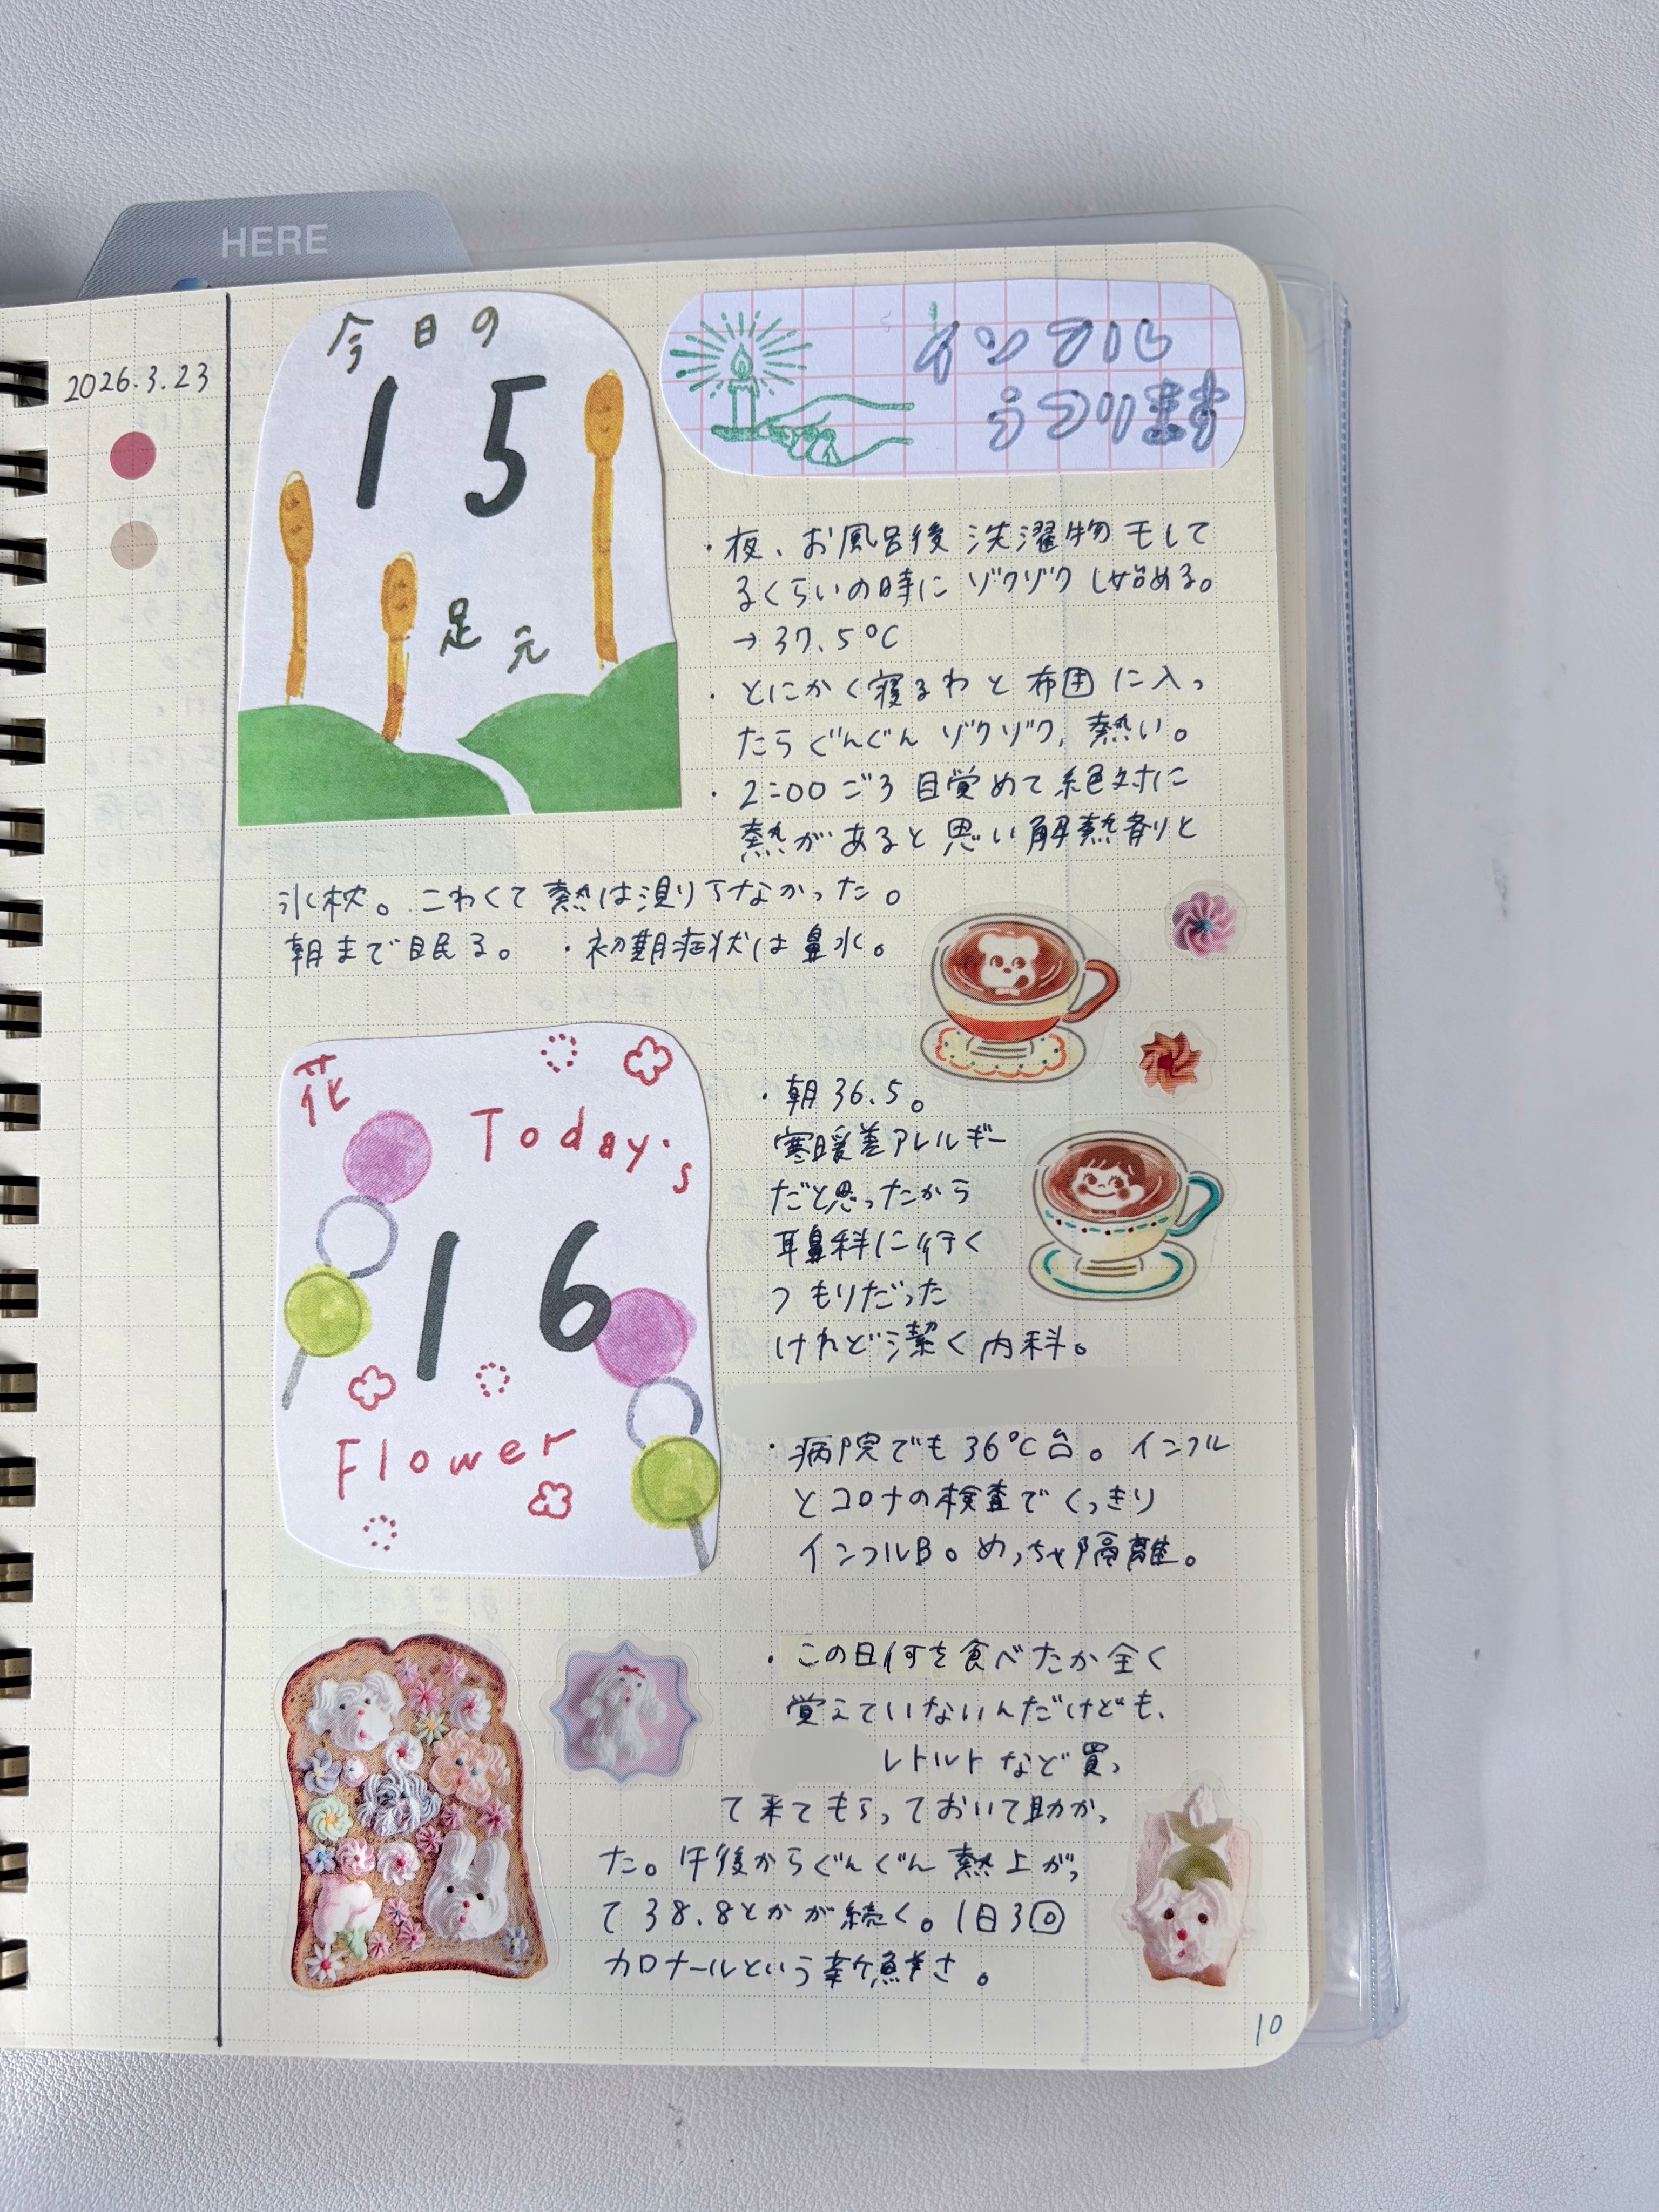 HERE
2026.3.23
今日の
15
足元
インフル
うつります
・夜、お風呂後洗濯物干して
るくらいの時にゾクゾクし始める。
→37.5℃
・とにかく寝るわと布団に入っ
たらぐんぐんゾクゾク、熱い。
・2:00ごろ目覚めて絶対に
熱があると思い解熱剤と
氷枕。こわくて熱は測れなかった。
朝まで眠る。 ・初期症状は鼻水。
花
Today's
16
Flower
・朝36.5。
寒暖差アレルギー
だと思ったから
耳鼻科に行く
つもりだった
けれど潔く内科。
・病院でも36℃台。インフル
とコロナの検査でくっきり
インフルB。めっちゃ隔離。
・この日何を食べたか全く
覚えていないんだけども、
レトルトなど買っ
て来てもらっておいて助かっ
た。午後からぐんぐん熱上がっ
て38.8とかが続く。1日3回
カロナールという新鮮さ。
10